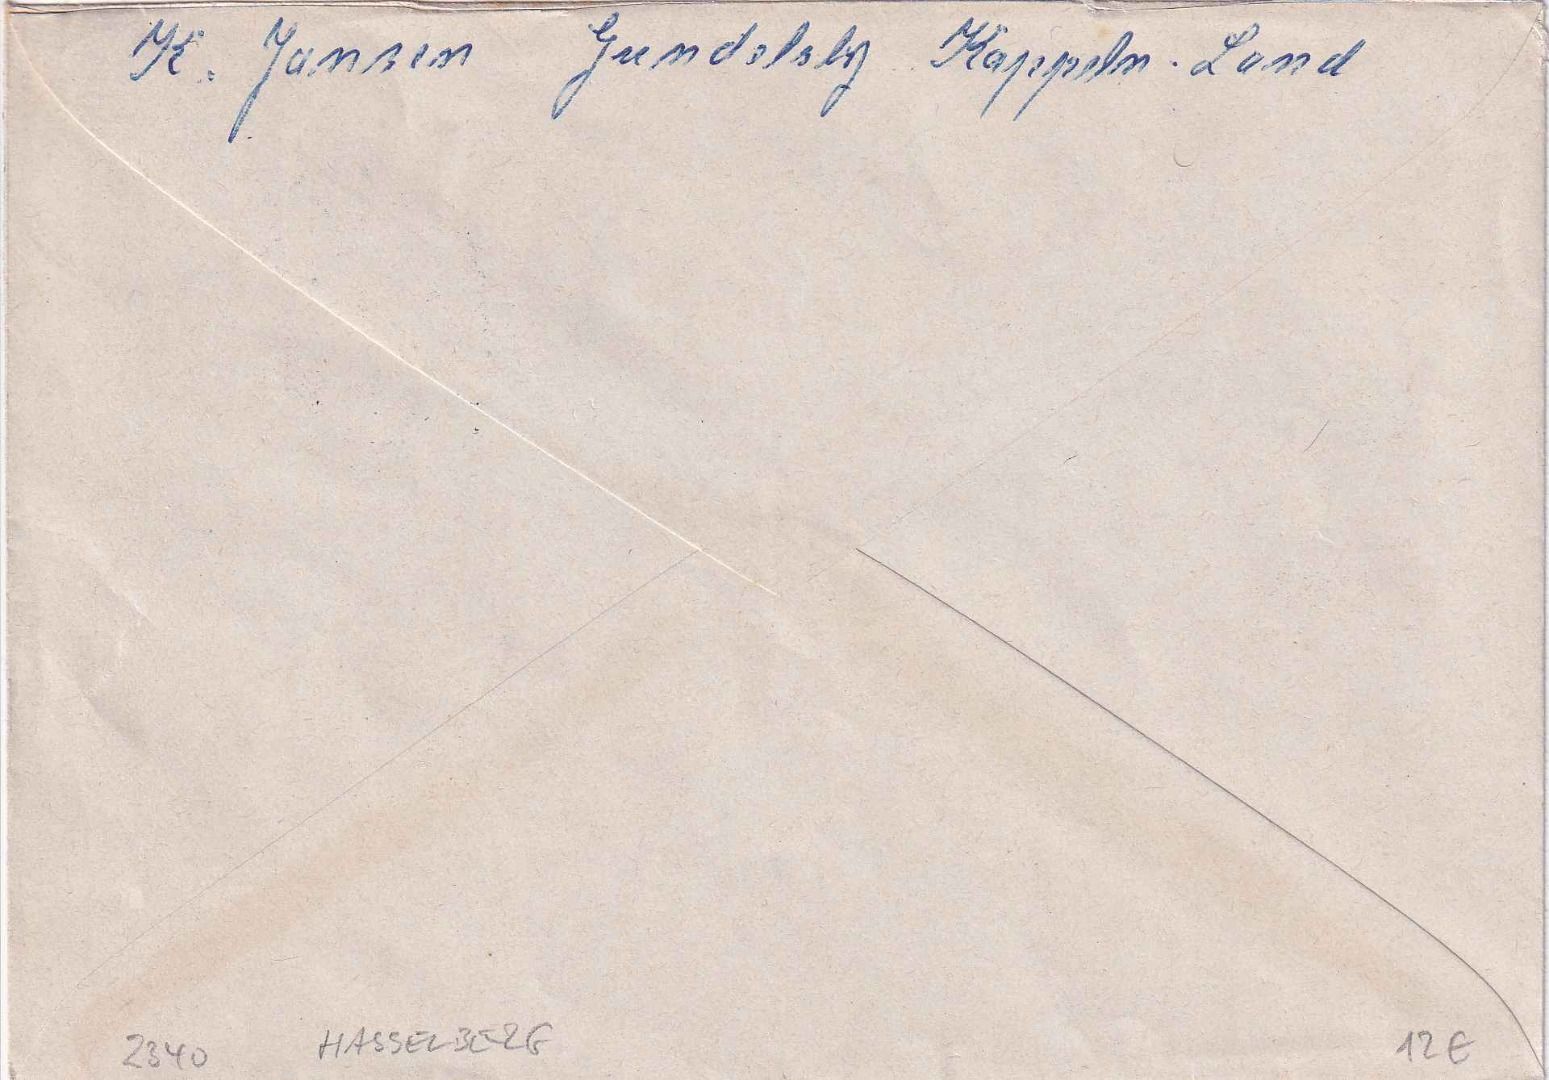 K. Jansen Gundelsby Kappeln-Land
2340 HASSELBERG 12 €